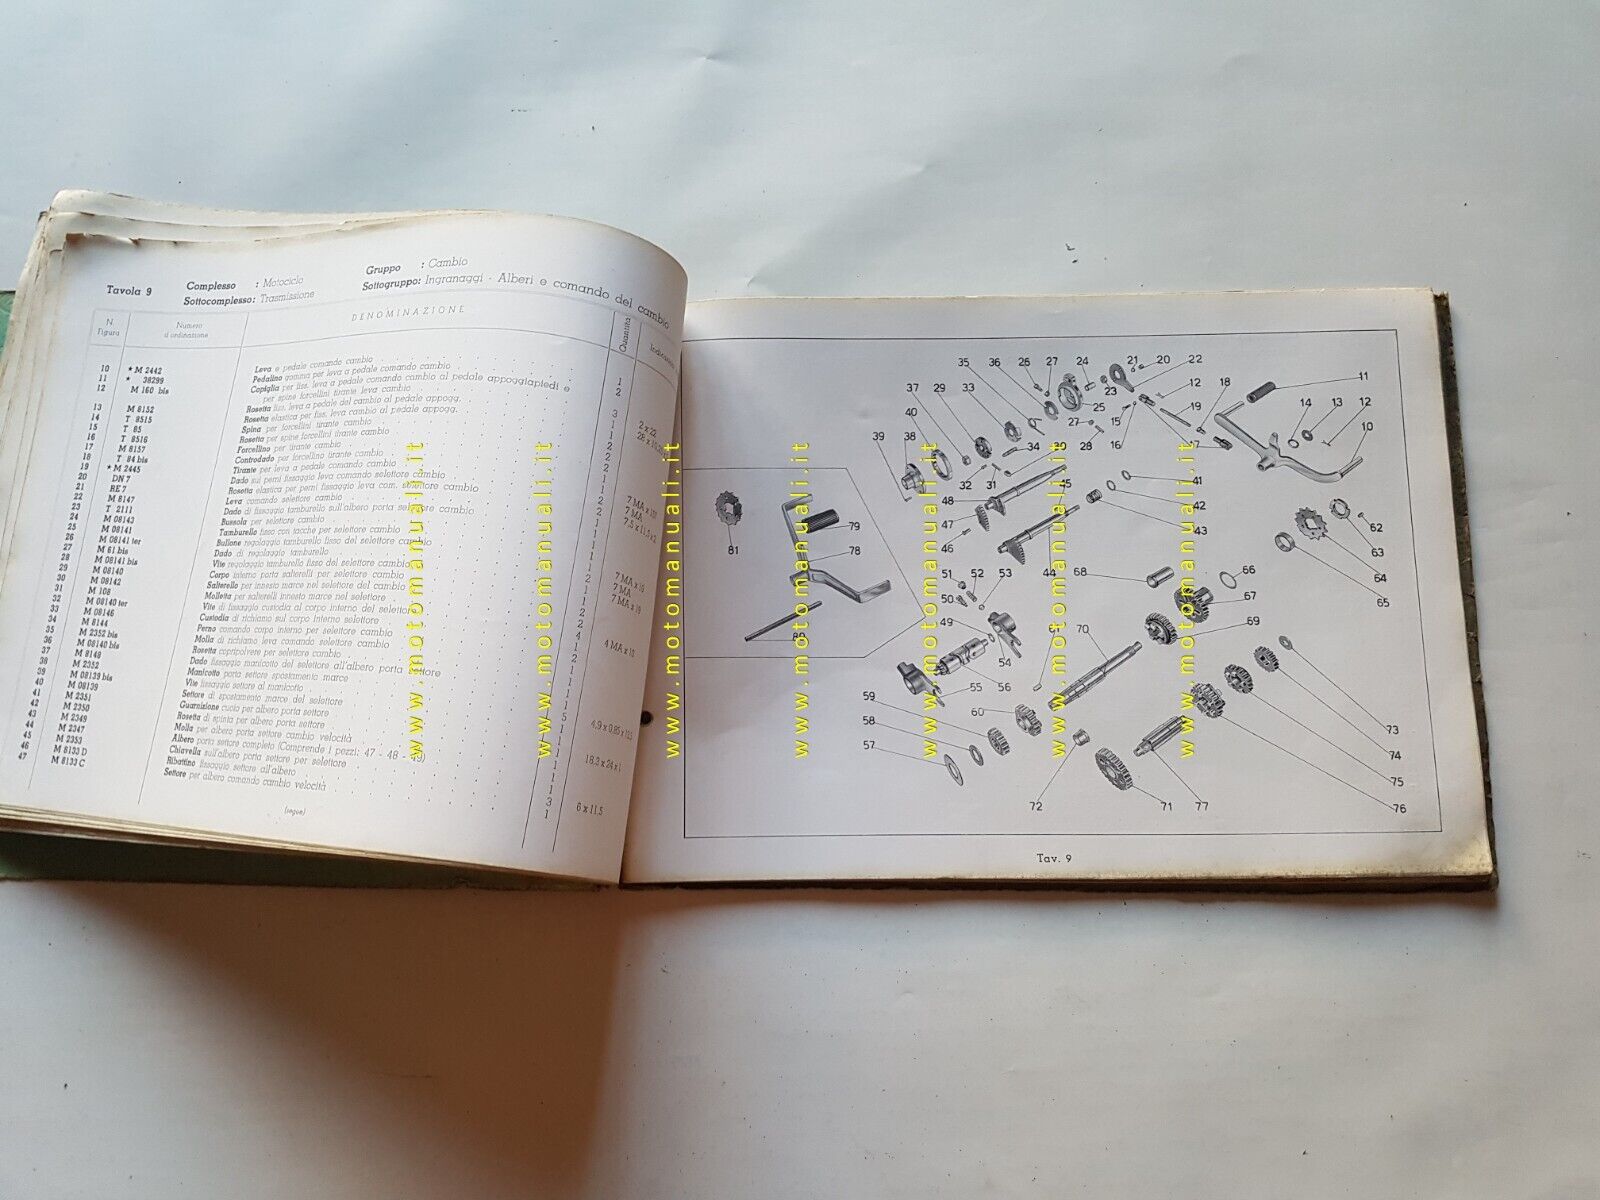 Tavola 9
Complesso : Motociclo
Sottocomplesso: Trasmissione
Gruppo : Cambio
Sottogruppo: Ingranaggi - Alberi e comando del cambio
N. Figura
Numero d'ordinazione
DENOMINAZIONE
Quantità
10 * M 2442 Leva e pedale comando cambio 1
11 * 38299 Pedalino gomma per leva a pedale comando cambio 2
12 M 160 bis Copiglia per fiss. leva a pedale comando cambio al pedale appoggiapiedi e
per spine forcellini tirante leva cambio 3
13 M 8152 Rosetta fiss. leva a pedale del cambio al pedale appogg.
14 T 8515 Rosetta elastica per fiss. leva cambio al pedale appogg.
15 T 85 Spina per forcellini tirante cambio
16 T 8516 Rosetta per spine forcellini tirante cambio
17 M 8157 Forcellino per tirante cambio
18 T 84 bis Controdado per forcellino tirante cambio
19 * M 2445 Tirante per leva a pedale comando cambio
20 DN 7 Dado sui perni fissaggio leva comando selettore cambio
21 RE 7 Rosetta elastica per perni fissaggio leva com. selettore cambio
22 M 8147 Leva comando selettore cambio
23 T 2111 Dado di fissaggio tamburello sull'albero porta selettore cambio
24 M 08143 Bussola per selettore cambio
25 M 08141 Tamburello fisso con tacche per selettore cambio
26 M 08141 ter Bullone regolaggio tamburello fisso del selettore cambio
27 M 61 bis Dado di regolaggio tamburello
28 M 08141 bis Vite regolaggio tamburello fisso del selettore cambio
29 M 08140 Corpo interno porta salterelli per selettore cambio
30 M 08142 Salterello per innesto marce nel selettore cambio
31 M 108 Molletta per salterelli innesto marce nel selettore
32 M 08140 ter Vite di fissaggio custodia al corpo interno del selettore
33 M 08146 Custodia di richiamo sul corpo interno selettore
34 M 8144 Perno comando corpo interno per selettore cambio
35 M 2352 bis Molla di richiamo leva comando selettore cambio
36 M 08140 bis Rosetta copripolvere per selettore cambio
37 M 8149 Dado fissaggio manicotto del selettore all'albero porta settore
38 M 2352 Manicotto porta settore spostamento marce
39 M 08139 bis Vite fissaggio settore al manicotto
40 M 08139 Settore di spostamento marce del selettore
41 M 2351 Guarnizione cuoio per albero porta settore
42 M 2350 Rosetta di spinta per albero porta settore
43 M 2349 Molla per albero porta settore cambio velocità
44 M 2347 Albero porta settore completo (Comprende i pezzi: 47 - 48 - 49)
45 M 2353 Chiavella sull'albero porta settore per selettore
46 M 8133 D Ribattino fissaggio settore all'albero 3 6 x 11,5
47 M 8133 C Settore per albero comando cambio velocità 1
2 x 22
7 MA x 10
7 MA
7 MA x 18
4 MA x 10
18,3 x 24 x 1
(segue)
35 36 26 27 24 21 20 22
37 29 33 23 12 18 11
40 25 19 14 13 12
39 38 27 15 10
34 30 28 16 17
32 31 45 41
48 42
47 43 62
46 79 63
81 78 64
51 52 53 44 68 66 65
50 67
49 61 70 69
80 54
55 56
59 60
58 73
57 74
75
72 71 77 76
Tav. 9
www.motomanuali.it
www.motomanuali.it
www.motomanuali.it
www.motomanuali.it
www.motomanuali.it
www.motomanuali.it
www.motomanuali.it